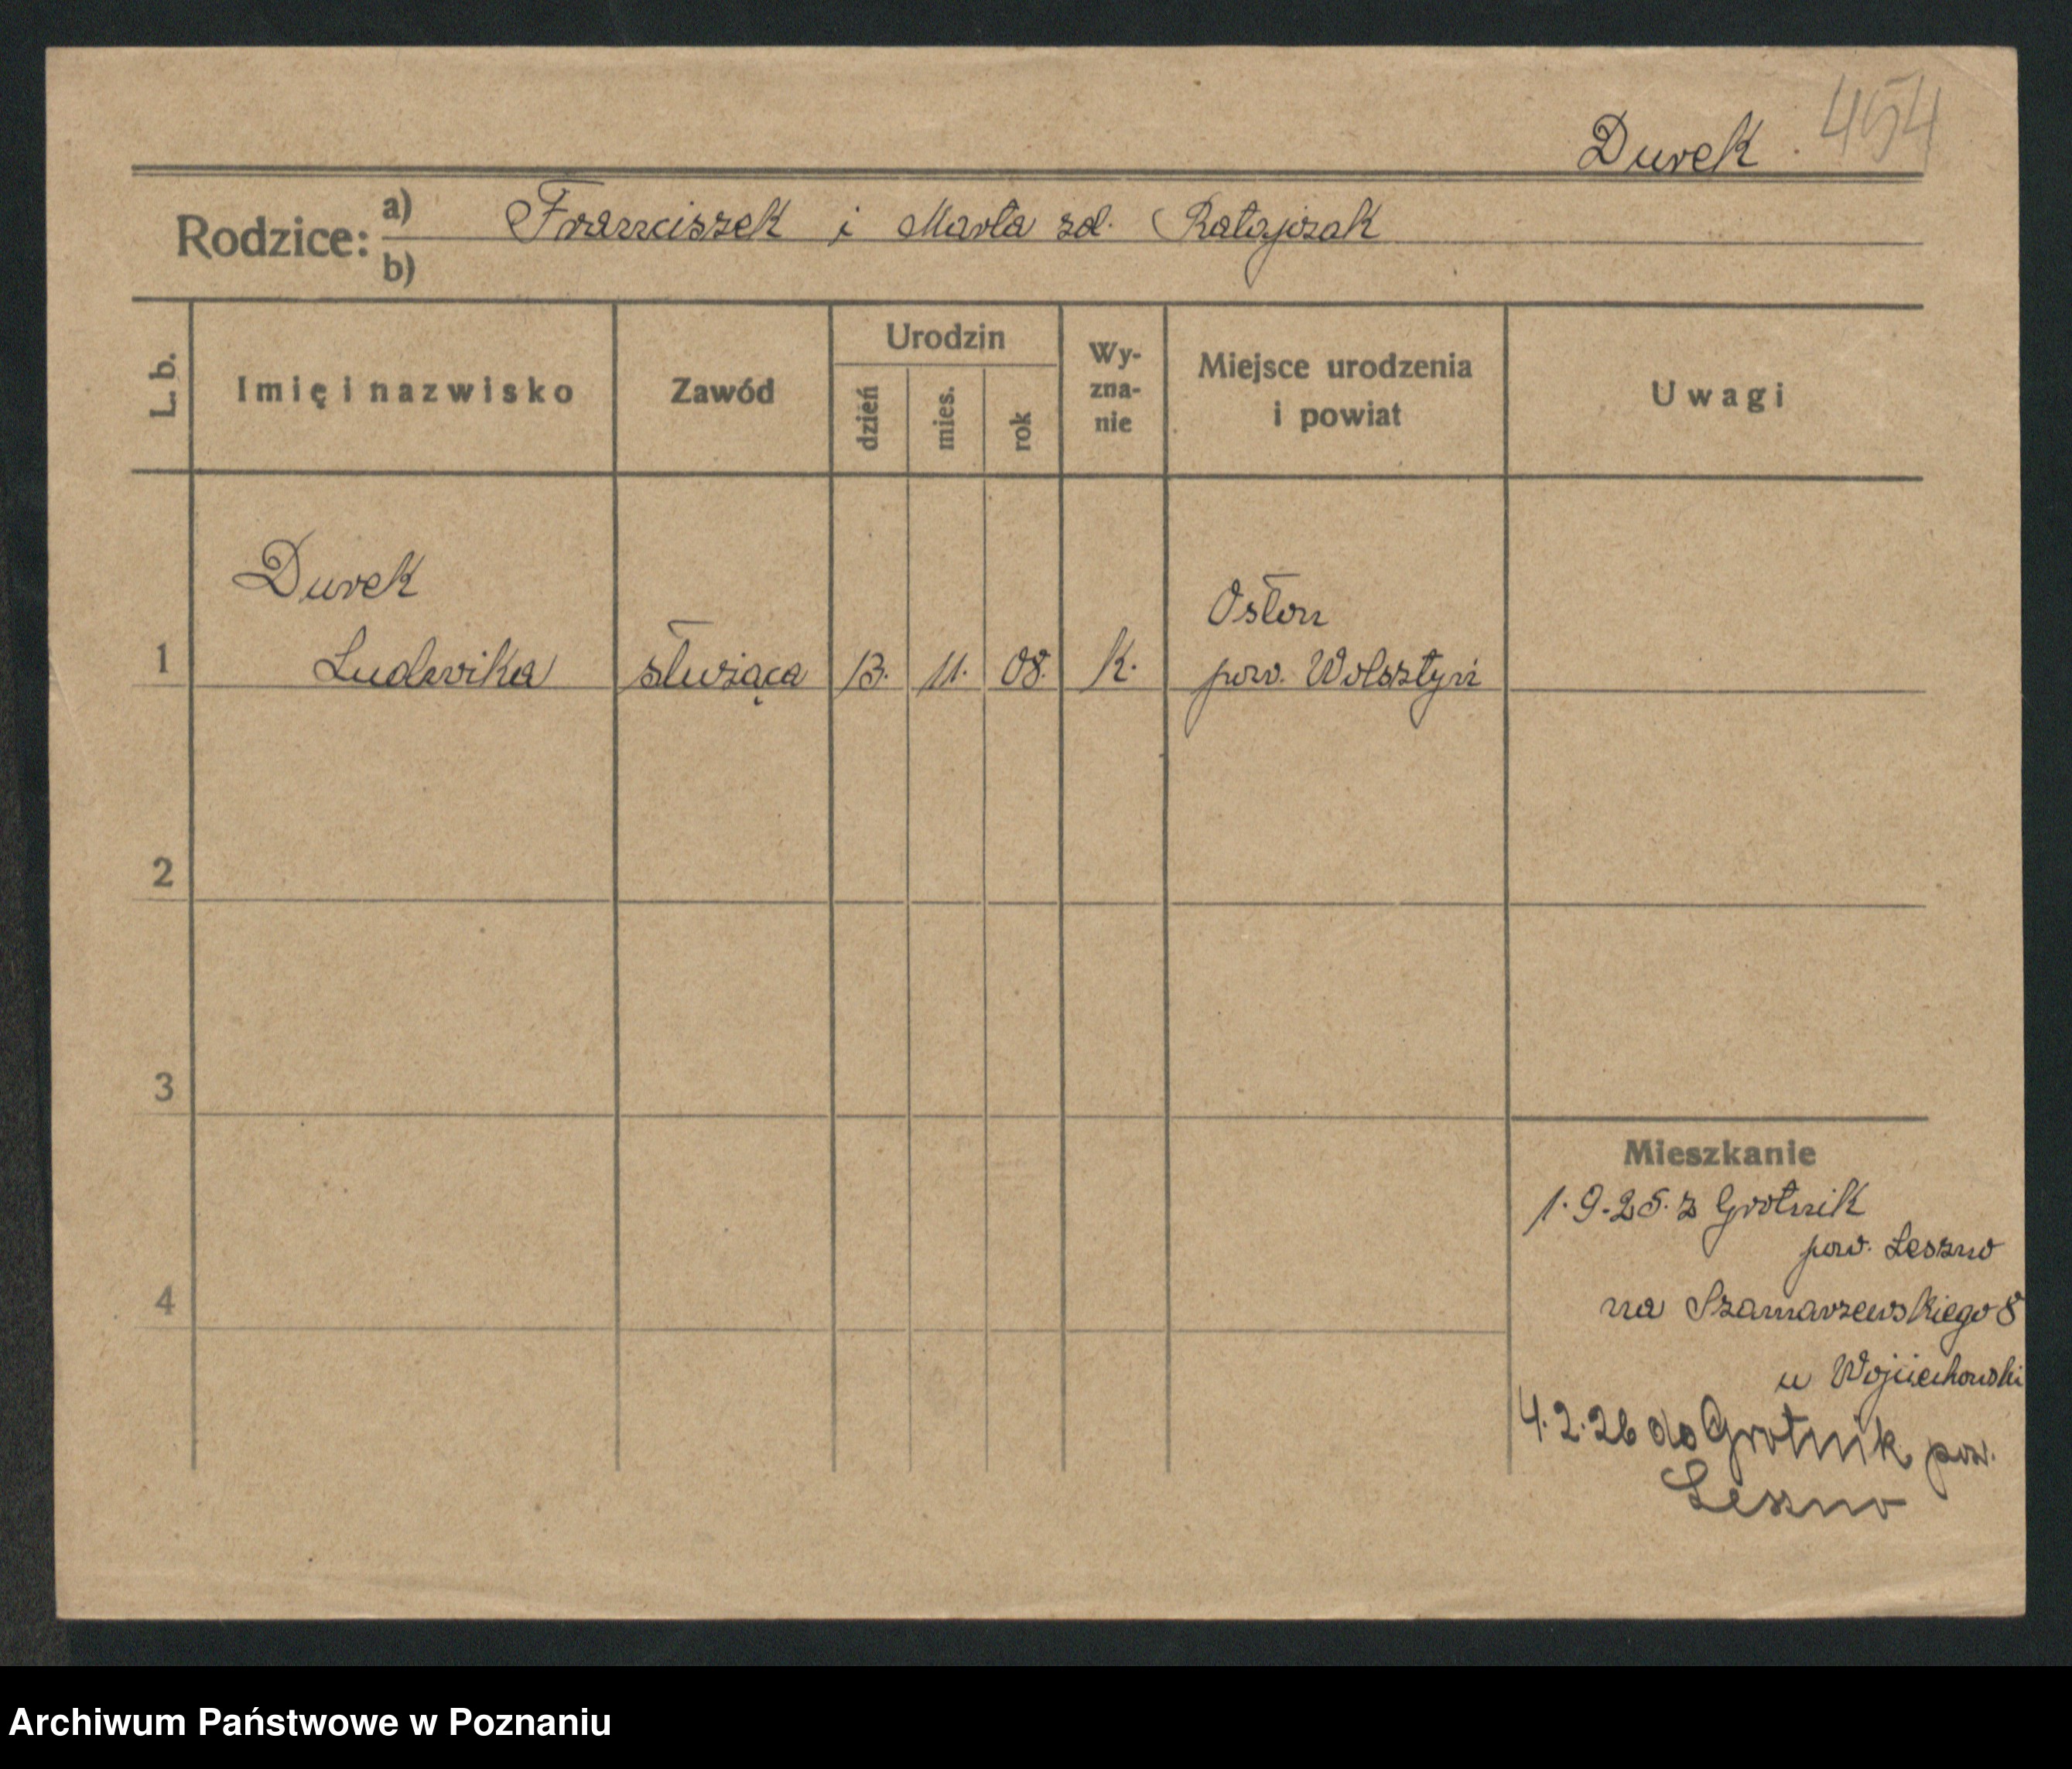 Durek . 454
Rodzice: a) Franciszek i Marta zd. Ratajczak
b)
L. b. Imię i nazwisko Zawód Urodzin dzień mies. rok Wy-zna-nie Miejsce urodzenia i powiat Uwagi
Durek
Osłon
1 Ludwika służąca 13. 11. 08. K. pow. Wolsztyń
2
3
Mieszkanie
1.9.25. z Grotnik
pow. Leszno
4
na Szamarzewskiego 8
u Wojciechowski
4.2.26 do Grotnik pow.
Leszno
Archiwum Państwowe w Poznaniu